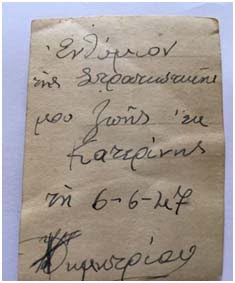 Ἐνθύμιον
τῆς Στρατιωτικῆς
μου ζωῆς ἐκ
Κατερίνης
τῇ 6-6-47
Δημητρίου